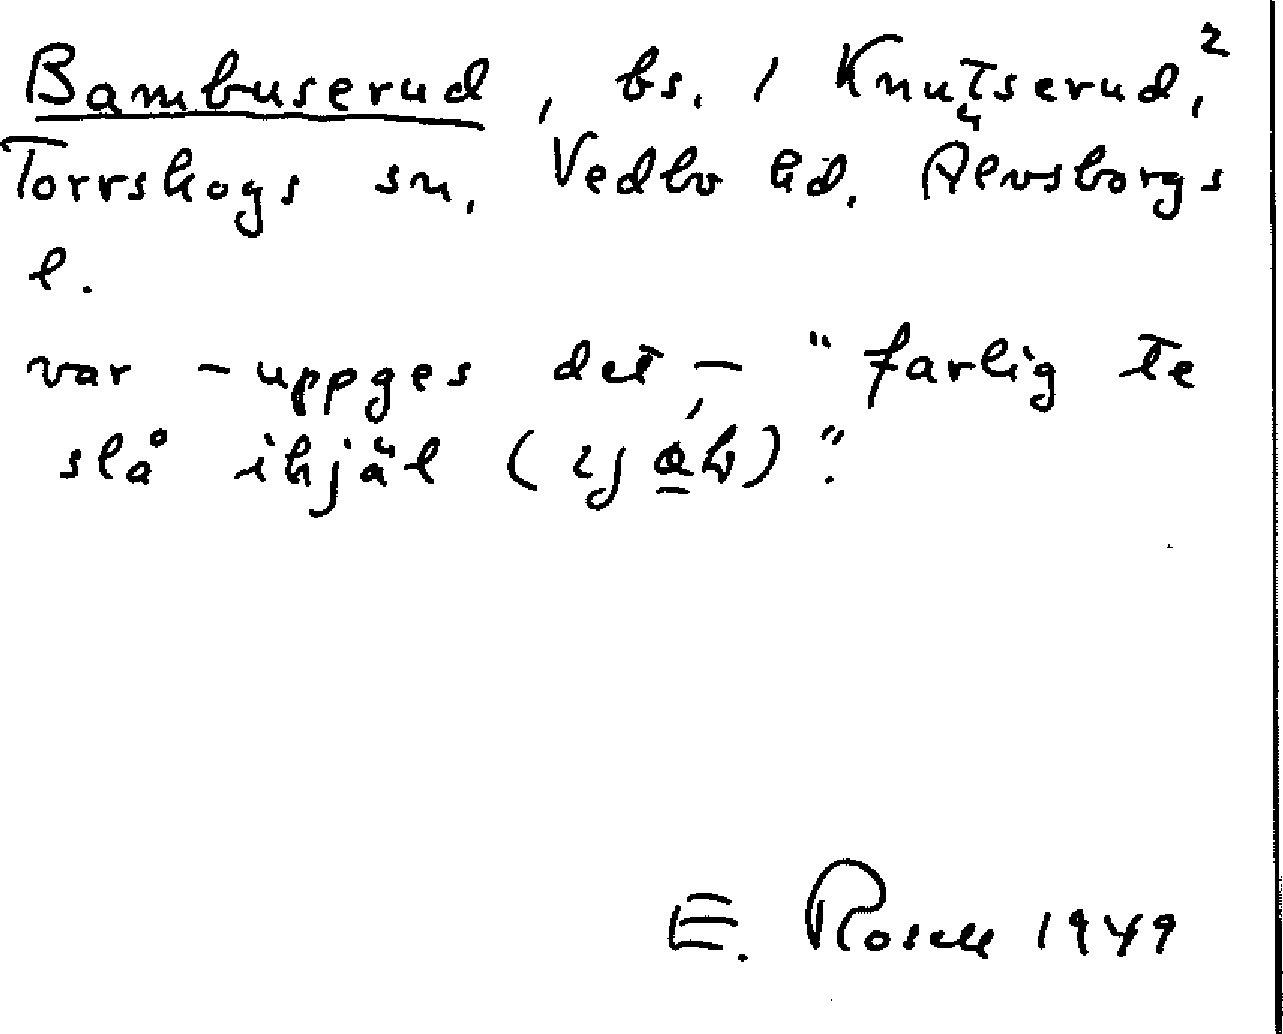 Bambuserud, bs. / Knutserud,²
Torrskogs sn, Vedbo hd. Älvsborgs
l.
var - uppges det - "farlig te
slå ihjäl ( )".
E. Rosell 1949